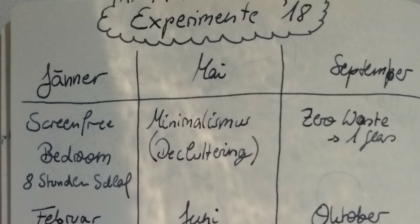 Experimente '18
Jänner
Screenfree
Bedroom
8 Stunden Schlaf
Februar
Mai
Minimalismus
(Decluttering)
Juni
September
Zero Waste
→ 1 Glas
Oktober